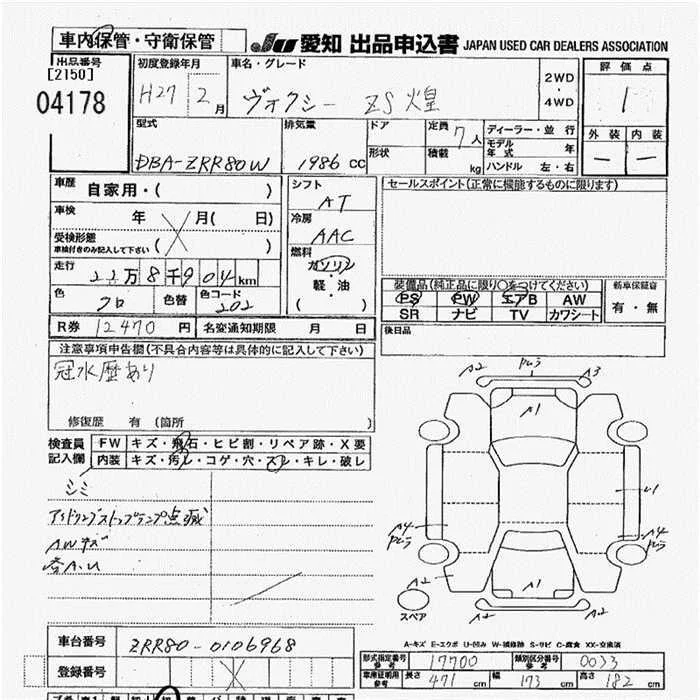 車内保管・守衛保管
JU 愛知 出品申込書 JAPAN USED CAR DEALERS ASSOCIATION
出品番号
[2150]
04178
初度登録年月
H27 2月
車名・グレード
ヴォクシー ZS 煌
2WD
・
4WD
評価点
1
外装 内装
— —
型式
DBA-ZRR80W
排気量
1986 CC
ドア
形状
定員 7人
積載 kg
ディーラー・並行
モデル年式 年
ハンドル 左・右
車歴
自家用・( )
車検 年 月( 日)
受検形態
車検付きのみ記入して下さい ( )
走行
22万8千904km
色
クロ
色替
色コード
202
シフト
AT
冷房
AAC
燃料
ガソリン
・
軽・油
( )
セールスポイント(正常に機能するものに限ります)
装備品(純正品に限り○をつけてください)
PS PW エアB AW
SR ナビ TV カワシート
新車保証書
有・無
R券 12470 円
名変通知期限 月 日
後日品
注意事項申告欄(不具合内容等は具体的に記入して下さい)
冠水歴あり
修復歴 有(箇所 )
検査員
記入欄
FW キズ・飛石・ヒビ割・リペア跡・X要
内装 キズ・汚レ・コゲ・穴・スレ・キレ・破レ
シミ
アイドリングストップランプ点滅
AWキズ
各A.U
A2
A3
A1
U1
A4
A4
A2
A1
A2
A2
スペア
A-キズ E-エクボ U-凹み W-補修跡 S-サビ C-腐食 XX-交換済
車台番号 ZRR80-0106968
登録番号
形式指定番号
参考
17700
類別区分番号
参考
0033
車庫証明用
参考
長さ 471 cm 幅 173 cm 高さ 182 cm